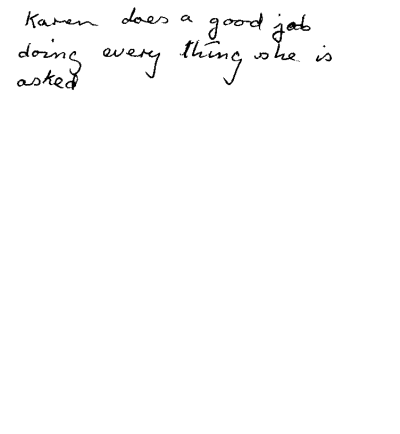 Karen does a good job
doing every thing she is
asked